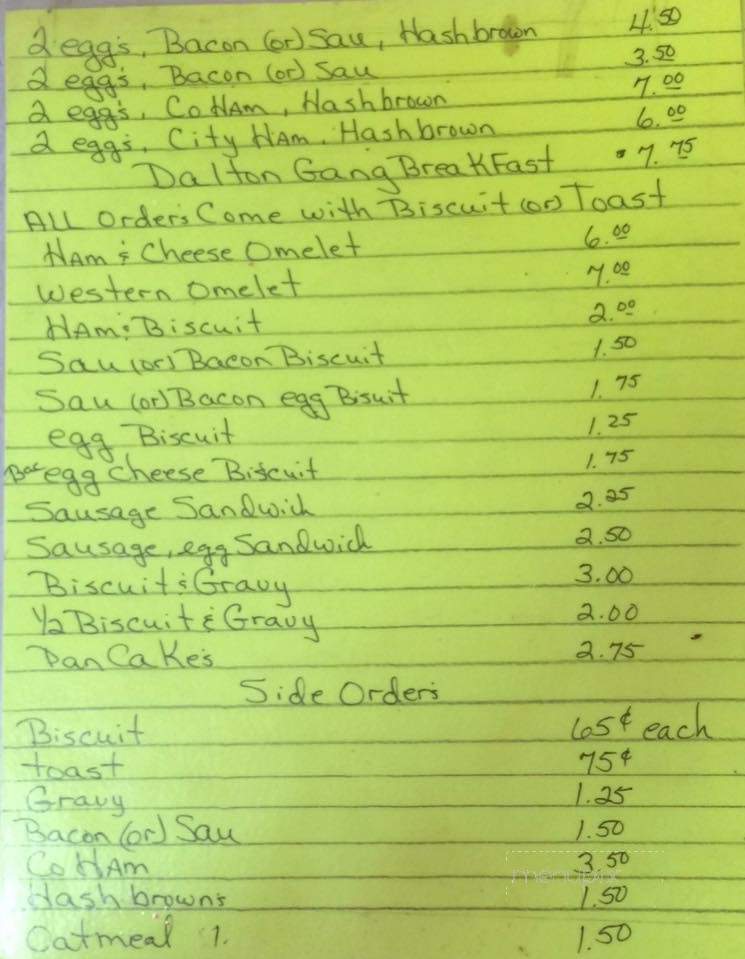 2 egg's, Bacon (or) Sau, Hashbrown 4.50
2 egg's, Bacon (or) Sau 3.50
2 egg's, Co HAm, Hashbrown 7.00
2 egg's, City HAm, Hashbrown 6.00
Dalton Gang BreaKFast 7.75
ALL Order's Come with Biscuit (or) Toast
HAm & Cheese Omelet 6.00
Western Omelet 7.00
HAm & Biscuit 2.00
Sau (or) Bacon Biscuit 1.50
Sau (or) Bacon egg Bisuit 1.75
egg Biscuit 1.25
Bac egg cheese Biscuit 1.75
Sausage Sandwich 2.25
Sausage, egg Sandwich 2.50
Biscuit & Gravy 3.00
1/2 Biscuit & Gravy 2.00
PanCaKe's 2.75
Side Order's
Biscuit 65¢ each
toast 75¢
Gravy 1.25
Bacon (or) Sau 1.50
Co HAm 3.50
Hash brown's 1.50
Oatmeal 1. 1.50
menupix